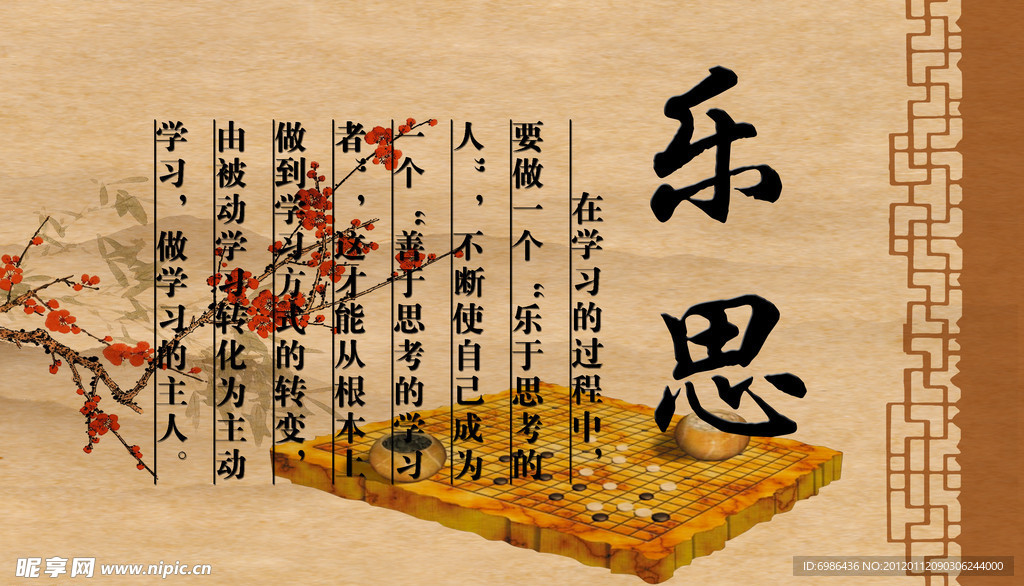 乐思
在学习的过程中，
要做一个“乐于思考的
人”，不断使自己成为
一个“善于思考的学习
者”，这才能从根本上
做到学习方式的转变，
由被动学习转化为主动
学习，做学习的主人。
昵享网 www.nipic.cn
ID:6986436 NO:20120112090306244000